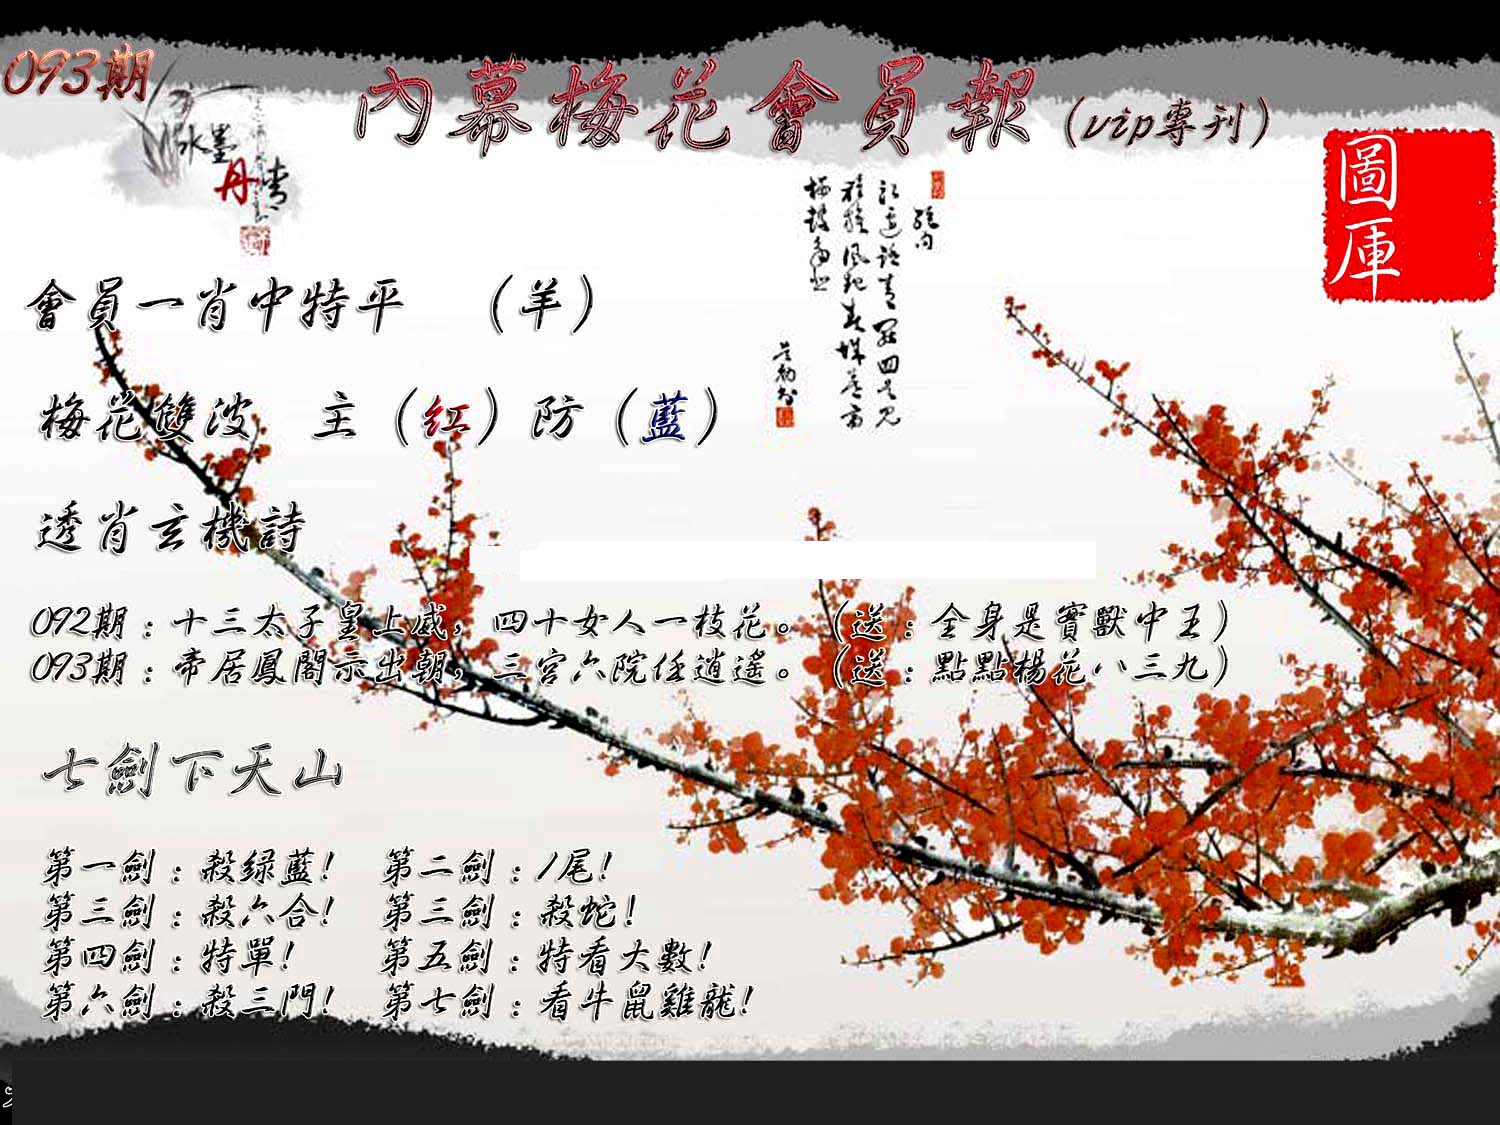 093期
內幕梅花會員報（vip專刊）
水墨
丹青
圖庫
會員一肖中特平 （羊）
梅花雙波 主（紅）防（藍）
透肖玄機詩
092期：十三太子皇上威，四十女人一枝花。（送：全身是寶獸中王）
093期：帝居鳳閣示出朝，三宮六院任逍遙。（送：點點楊花八三九）
七劍下天山
第一劍：殺绿藍！ 第二劍：1尾！
第三劍：殺六合！ 第三劍：殺蛇！
第四劍：特單！ 第五劍：特看大數！
第六劍：殺三門！ 第七劍：看牛鼠雞龍！